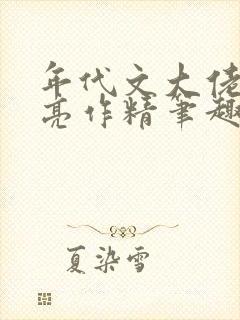 年代文大佬
亮作精笔趣
夏染雪